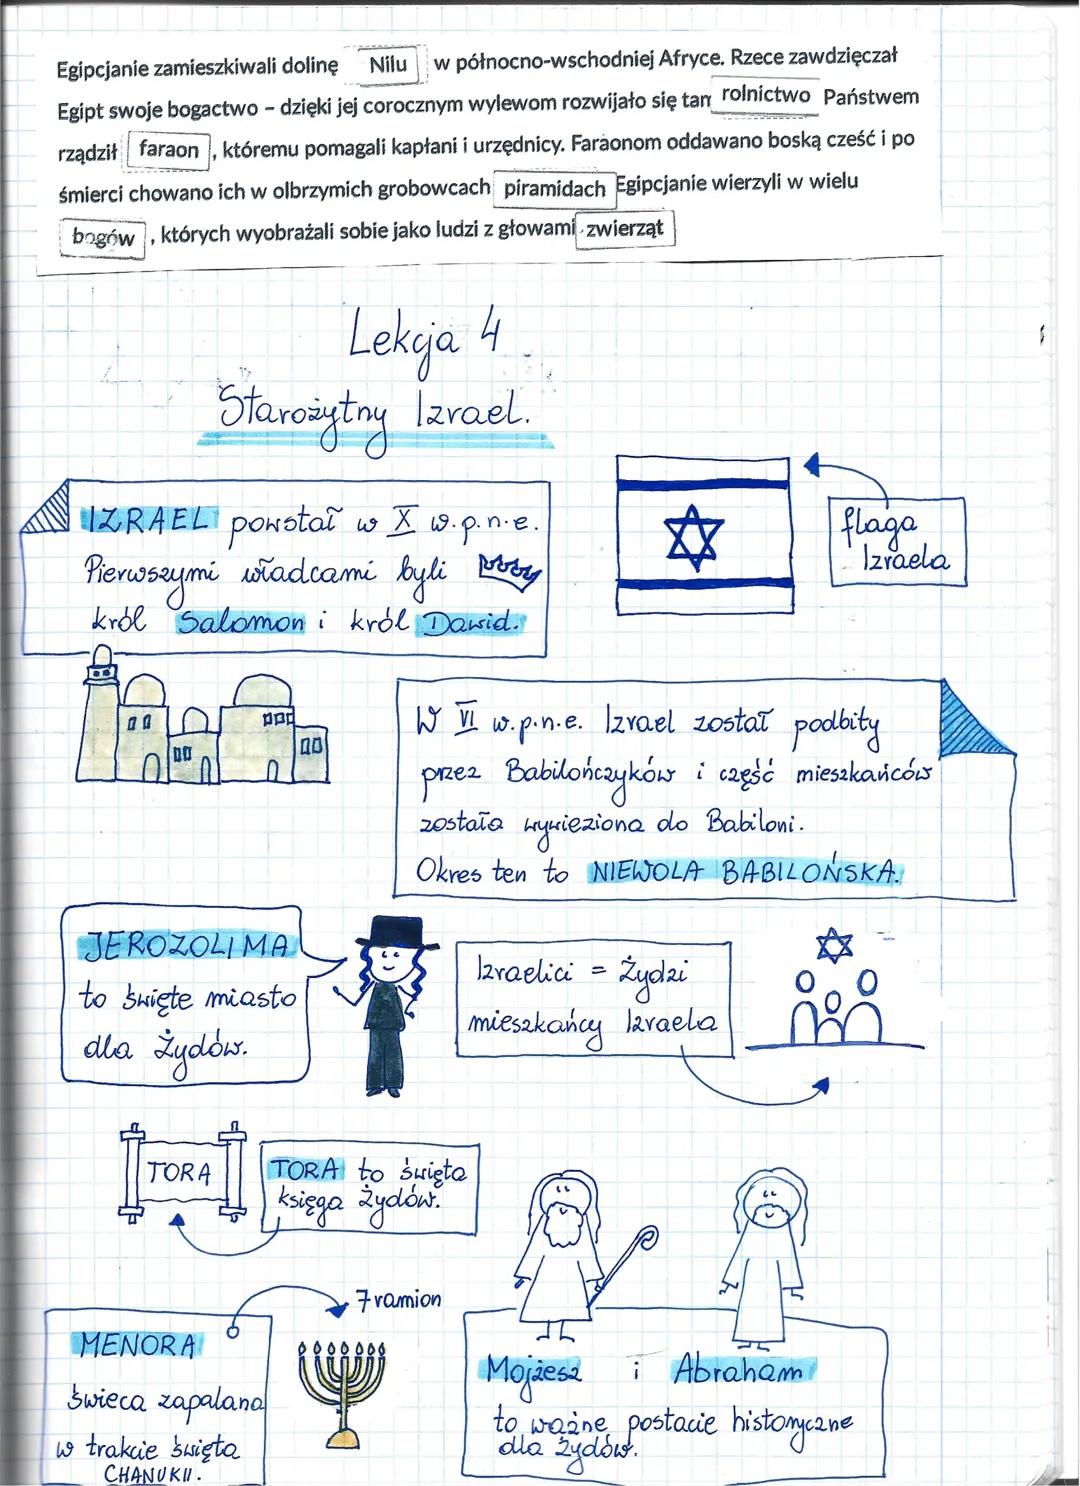 Egipcjanie zamieszkiwali dolinę Nilu w północno-wschodniej Afryce. Rzece zawdzięczał
Egipt swoje bogactwo – dzięki jej corocznym wylewom rozwijało się tam rolnictwo Państwem
rządził faraon, któremu pomagali kapłani i urzędnicy. Faraonom oddawano boską cześć i po
śmierci chowano ich w olbrzymich grobowcach piramidach Egipcjanie wierzyli w wielu
bogów, których wyobrażali sobie jako ludzi z głowami zwierząt
Lekcja 4
Starożytny Izrael.
IZRAEL powstał w X w.p.n.e.
Pierwszymi władcami byli
król Salomon i król Dawid.
flaga
Izraela
W VI w.p.n.e. Izrael został podbity
przez Babilończyków i część mieszkańców
została wywieziona do Babiloni.
Okres ten to NIEWOLA BABILOŃSKA.
JEROZOLIMA
to święte miasto
dla Żydów.
Izraelici = Żydzi
mieszkańcy Izraela
TORA
TORA to święta
księga żydów.
7 ramion
MENORA
świeca zapalana
w trakcie święta
CHANUKII.
Mojżesz i Abraham
to ważne postacie historyczne
dla żydów.